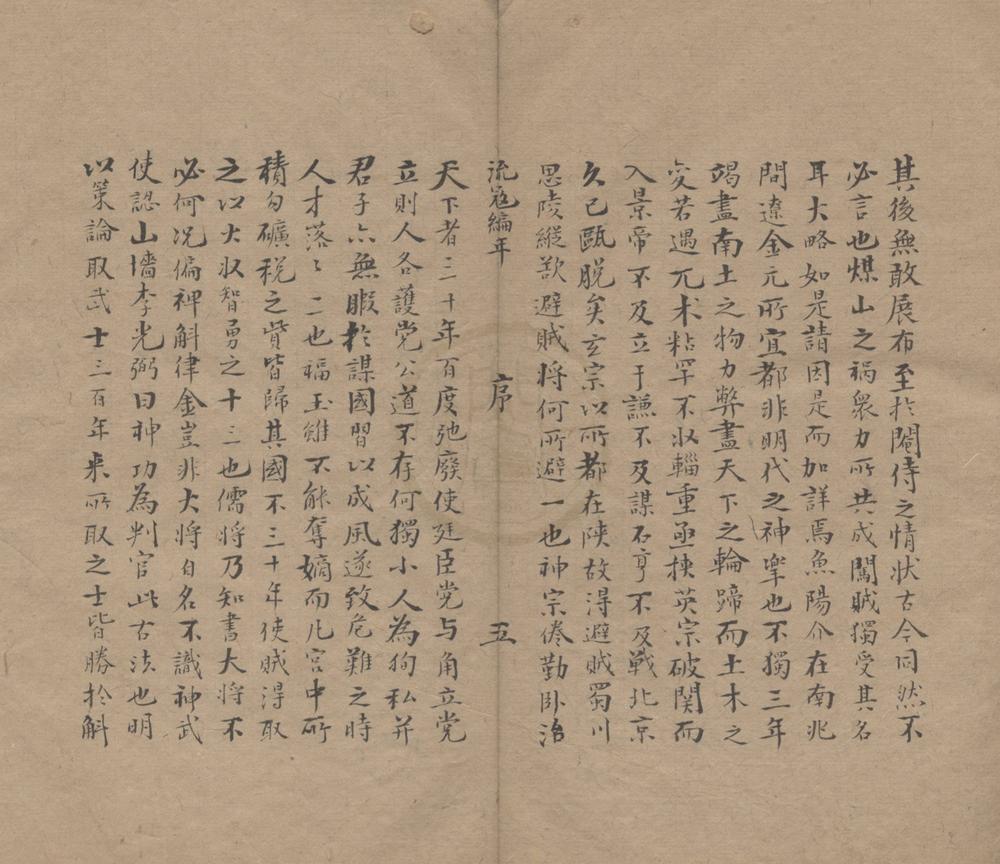 其後無敢展布至扵閹侍之情狀古今同然不
必言也煤山之禍衆力所共成闖賊獨受其名
耳大略如是請因是而加詳焉魚陽介在南兆
間遼金元所宜都非明代之神臯也不獨三年
竭盡南土之物力弊盡天下之輪蹄而土木之
变若遇兀术粘罕不収輜重亟挾英宗破関而
入景帝不及立于謙不及謀石亨不及戰北京
久已甌脱矣玄宗以所都在陕故淂避賊蜀川
思陵縱欲避賊将何所避一也神宗倦勤卧治
流寇編年 序 五
天下者三十年百度弛廢使廷臣党与角立党
立則人各護党公道不存何獨小人為狥私并
君子亦無暇扵謀國習以成風遂致危難之時
人才落〻二也福王雖不能奪嫡而凢宫中所
積匀礦税之貲皆歸其國不三十年使賊淂取
之以大収智勇之十三也儒将乃知書大将不
必何况偏裨斛律金豈非大将自名不識神武
使認山墻李光弼曰神功為判官此古法也明
以策論取武士三百年来所取之士皆勝扵斛